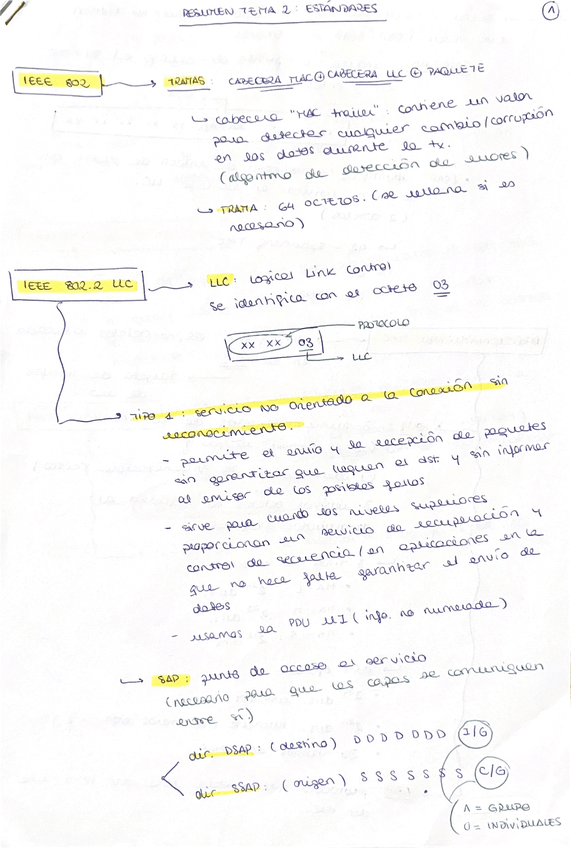 RESUMEN TEMA 2: ESTÁNDARES
1
IEEE 802 → TRAMAS: CABECERA MAC ⊕ CABECERA LLC ⊕ PAQUETE
↳ cabecera "MAC trailer": contiene un valor
para detectar cualquier cambio/corrupción
en los datos durante la tx.
(algoritmo de detección de errores)
↳ TRAMA: 64 OCTETOS. (se rellena si es
necesario)
IEEE 802.2 LLC → LLC: Logical Link Control
se identifica con el octeto 03
PROTOCOLO
xx xx 03
LLC
TIPO 1: servicio NO orientado a la conexión sin
reconocimiento.
- permite el envío y la recepción de paquetes
sin garantizar que lleguen al dst. y sin informar
al emisor de los posibles fallos
- sirve para cuando los niveles superiores
proporcionan un servicio de recuperación y
control de secuencia/en aplicaciones en la
que no hace falta garantizar el envío de
datos
- usamos la PDU UI (info. no numerada)
↳ SAP: punto de acceso al servicio
(necesario para que las capas se comuniquen
entre sí)
dir. DSAP: (destino) D D D D D D D I/G
dir SSAP: (origen) S S S S S S S C/G
1 = GRUPO
0 = INDIVIDUALES